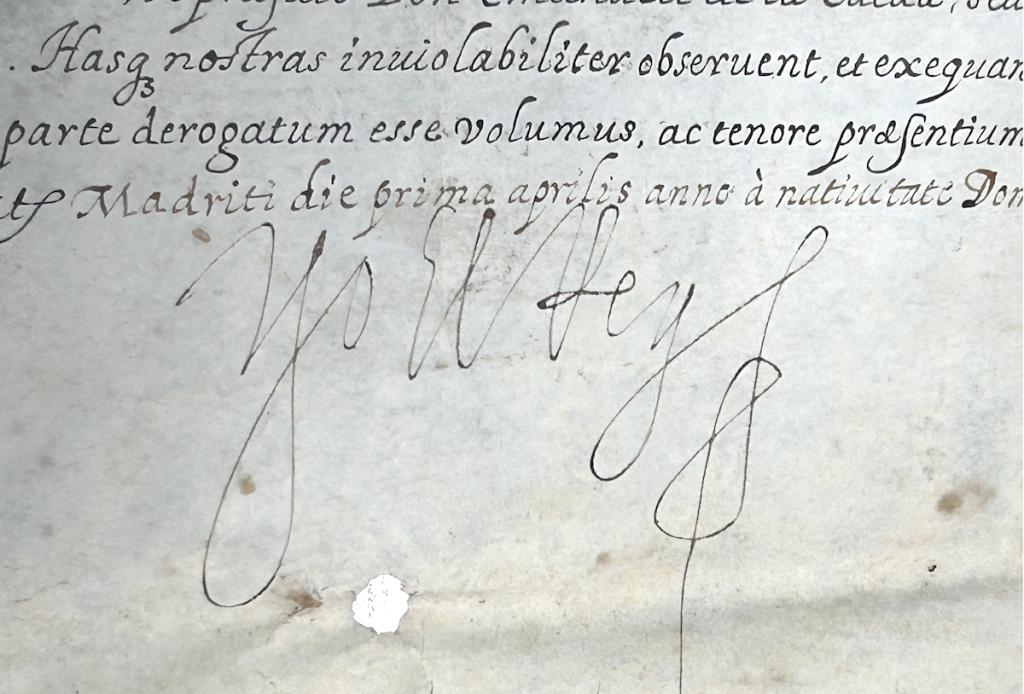 Don
. Hasq₃ nostras inuiolabiliter obseruent, et exequan
parte derogatum esse volumus, ac tenore præsentium
Madriti die prima aprilis anno à natiuitate Dom
Yo El Rey